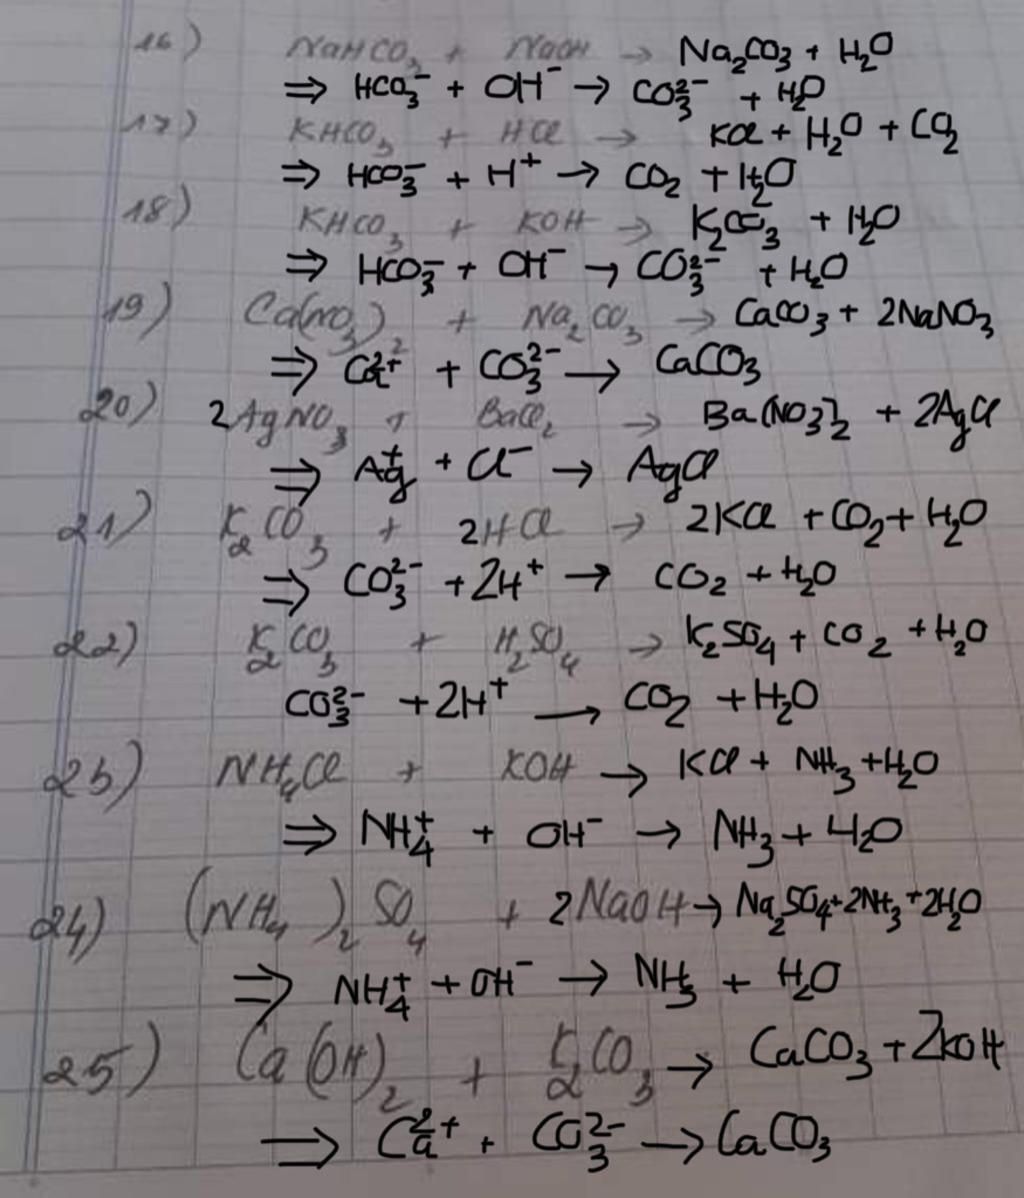 16) NaHCO₃ + NaOH → Na₂CO₃ + H₂O
⇒ HCO₃⁻ + OH⁻ → CO₃²⁻ + H₂O
17) KHCO₃ + HCl → KCl + H₂O + CO₂
⇒ HCO₃⁻ + H⁺ → CO₂ + H₂O
18) KHCO₃ + KOH → K₂CO₃ + H₂O
⇒ HCO₃⁻ + OH⁻ → CO₃²⁻ + H₂O
19) Ca(NO₃)₂ + Na₂CO₃ → CaCO₃ + 2NaNO₃
⇒ Ca²⁺ + CO₃²⁻ → CaCO₃
20) 2AgNO₃ + BaCl₂ → Ba(NO₃)₂ + 2AgCl
⇒ Ag⁺ + Cl⁻ → AgCl
21) K₂CO₃ + 2HCl → 2KCl + CO₂ + H₂O
⇒ CO₃²⁻ + 2H⁺ → CO₂ + H₂O
22) K₂CO₃ + H₂SO₄ → K₂SO₄ + CO₂ + H₂O
CO₃²⁻ + 2H⁺ → CO₂ + H₂O
23) NH₄Cl + KOH → KCl + NH₃ + H₂O
⇒ NH₄⁺ + OH⁻ → NH₃ + H₂O
24) (NH₄)₂SO₄ + 2NaOH → Na₂SO₄ + 2NH₃ + 2H₂O
⇒ NH₄⁺ + OH⁻ → NH₃ + H₂O
25) Ca(OH)₂ + K₂CO₃ → CaCO₃ + 2KOH
⇒ Ca²⁺ + CO₃²⁻ → CaCO₃